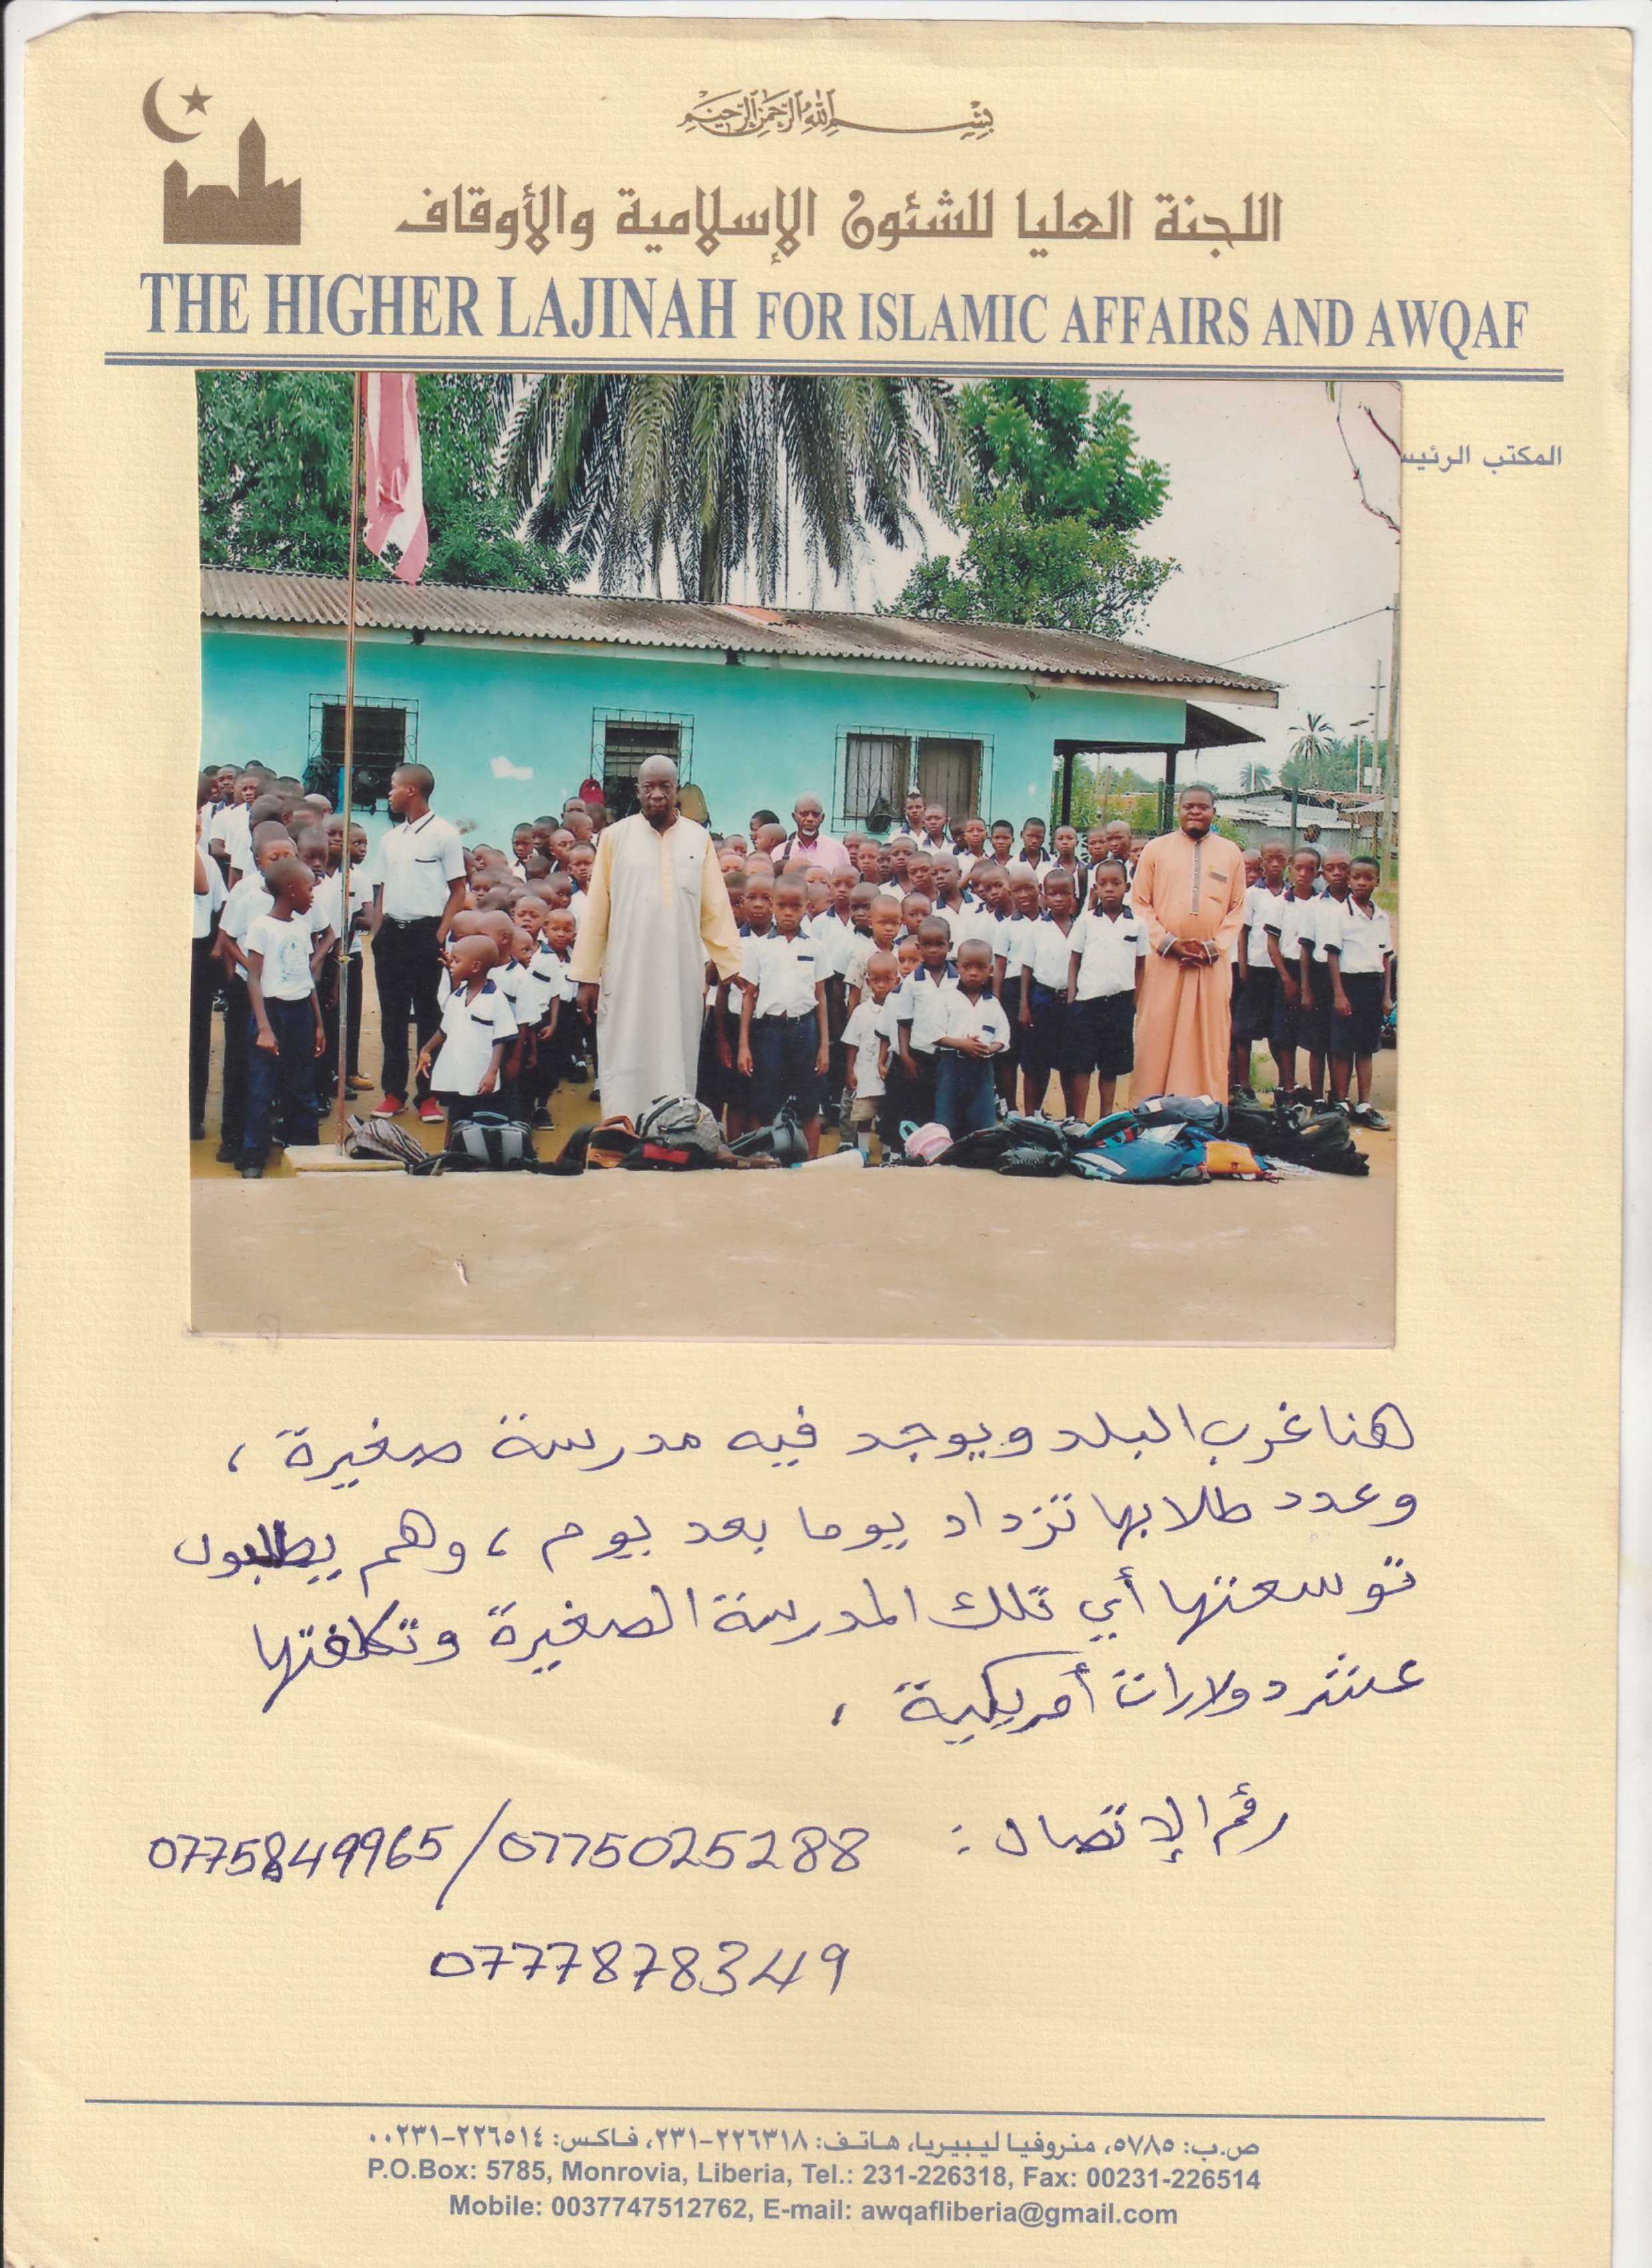 بسم الله الرحمن الرحيم
اللجنة العليا للشئون الإسلامية والأوقاف
THE HIGHER LAJINAH FOR ISLAMIC AFFAIRS AND AWQAF
المكتب الرئيس
هنا غرب البلد ويوجد فيه مدرسة صغيرة ،
وعدد طلابها تزداد يوما بعد يوم ، وهم يطلبون
توسعتها أي تلك المدرسة الصغيرة وتكلفتها
عشر دولارات أمريكية ،
رقم الإتصال : 0775025288 / 0775849965
0777878349
ص.ب: ٥٧٨٥، منروفيا ليبيريا، هاتف: ٢٢٦٣١٨-٢٣١، فاكس: ٢٢٦٥١٤-٠٠٢٣١
P.O.Box: 5785, Monrovia, Liberia, Tel.: 231-226318, Fax: 00231-226514
Mobile: 0037747512762, E-mail: awqafliberia@gmail.com